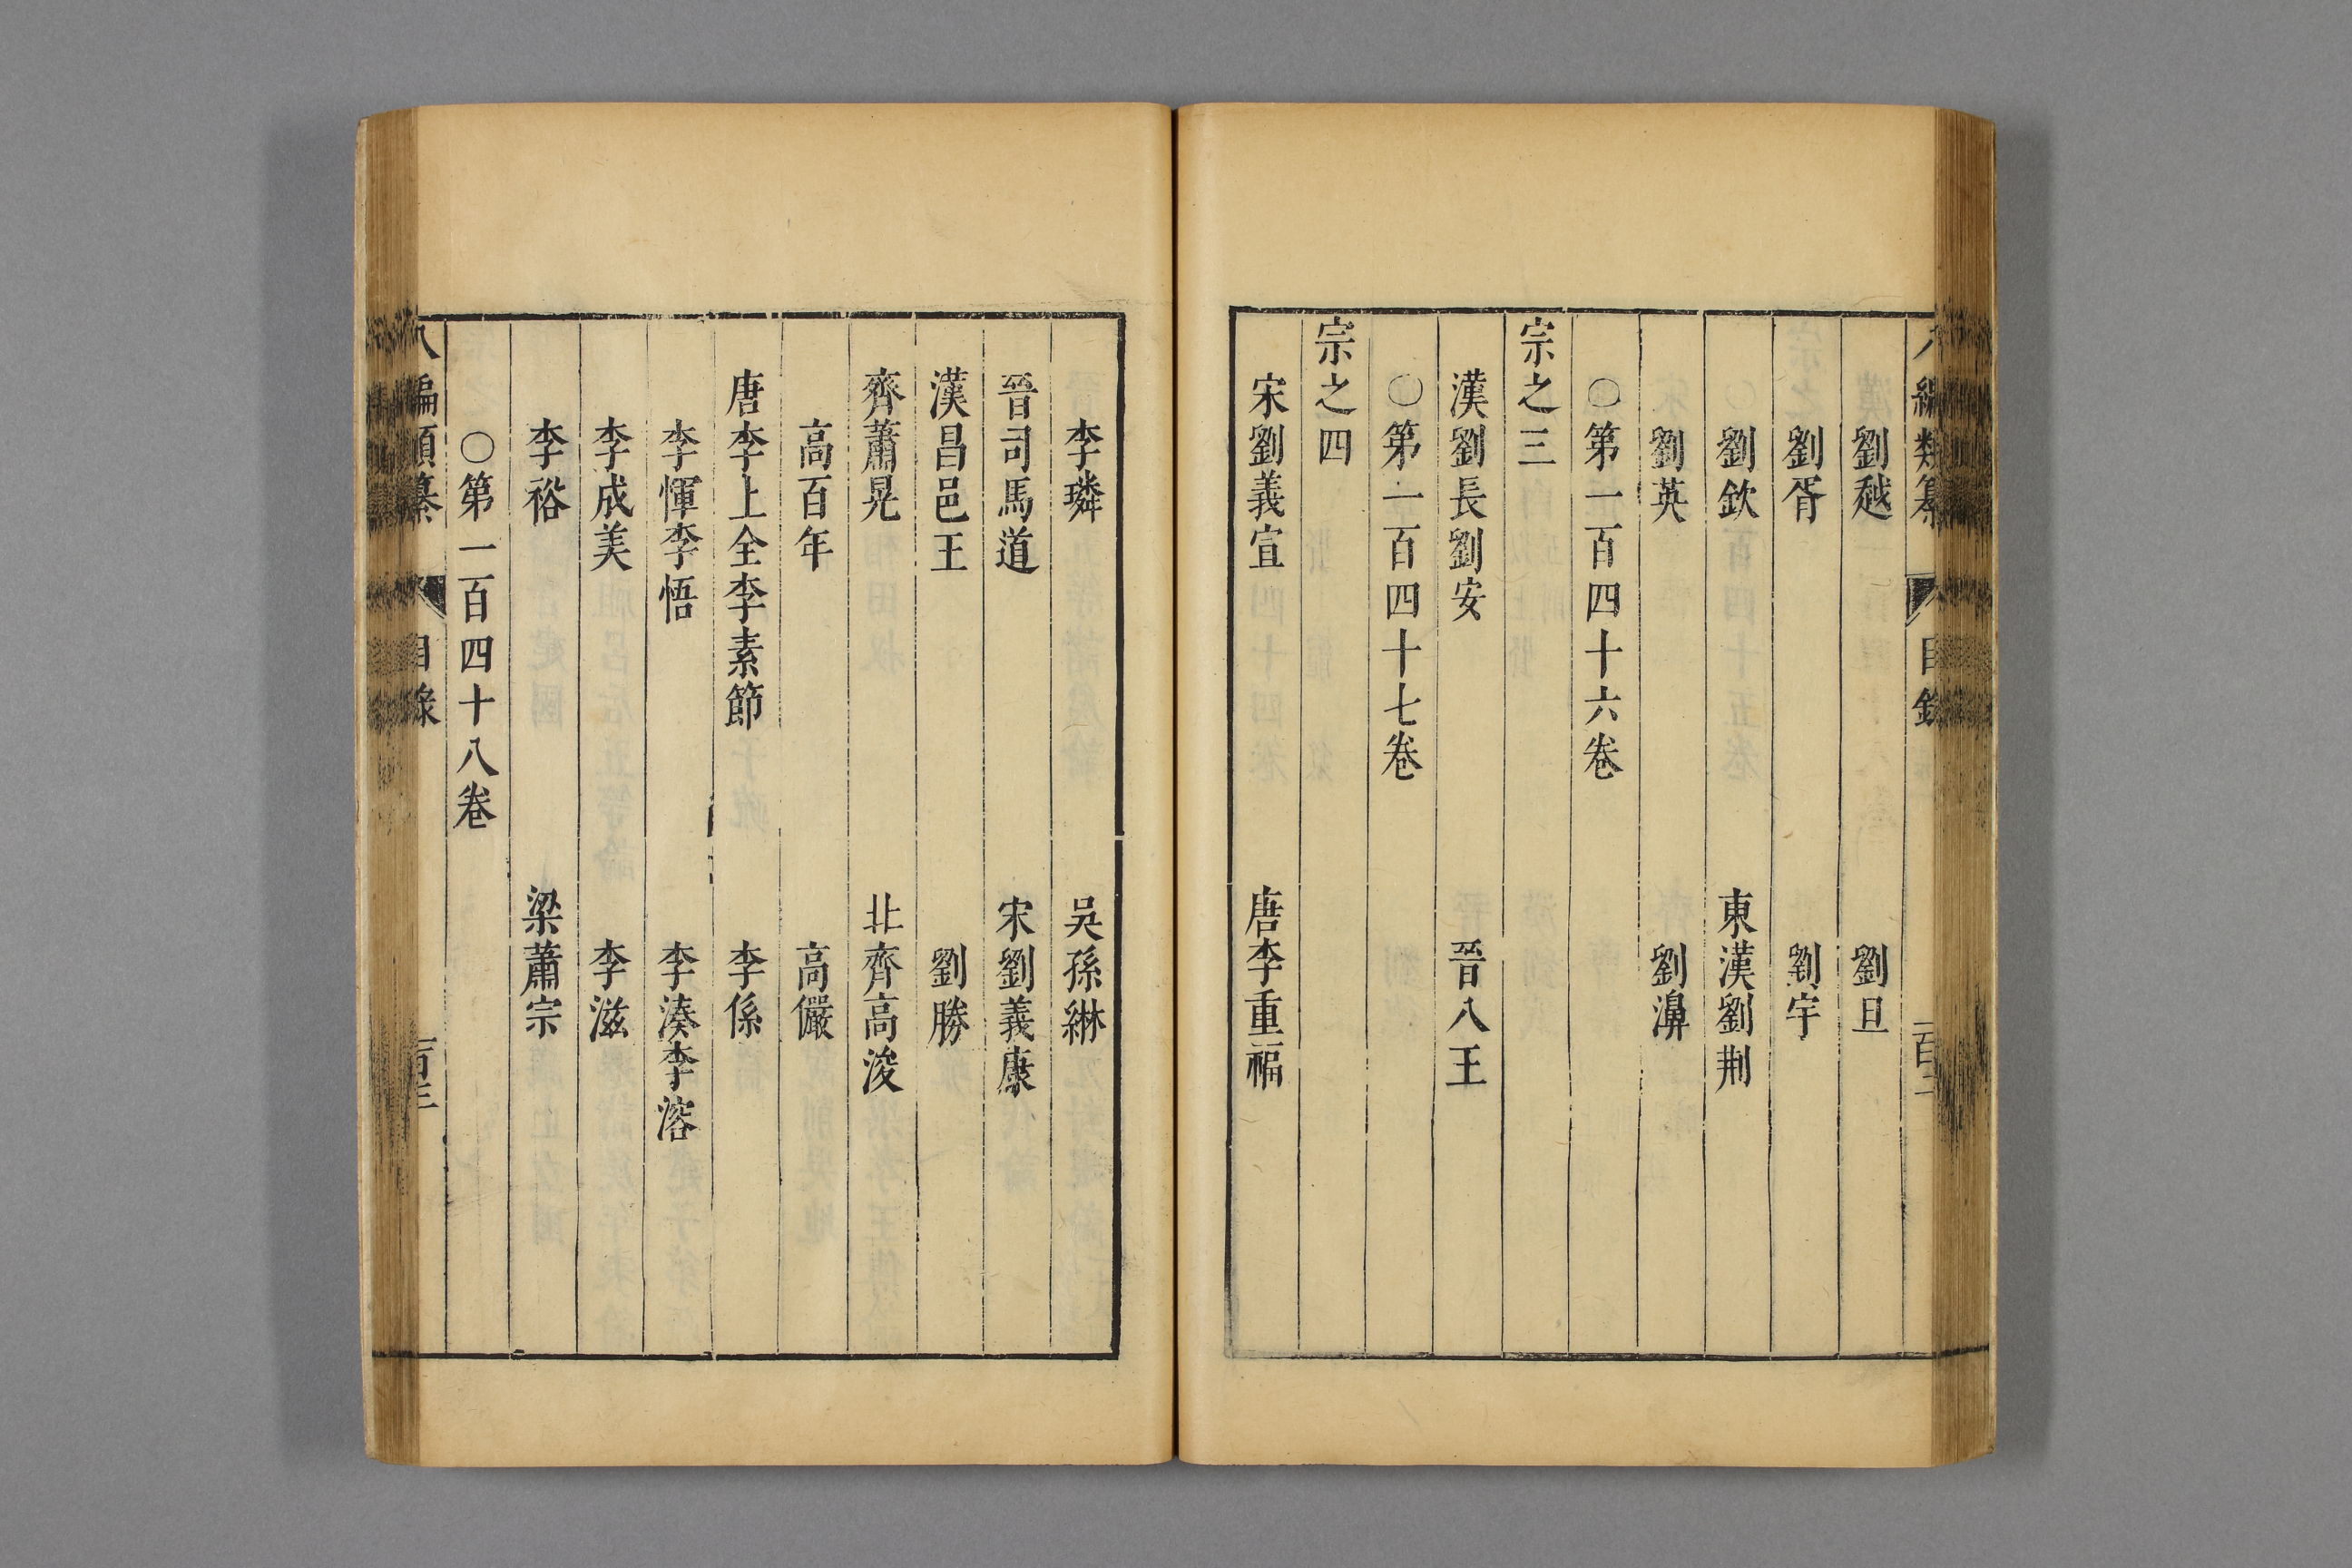 編類纂 目錄 百二
劉越 劉旦
劉胥 劉宇
劉欽 東漢劉荆
劉英 劉濞
○第一百四十六卷
宗之三
漢劉長劉安 晉八王
○第一百四十七卷
宗之四
宋劉義宣 唐李重福
李璘 吳孫綝
晉司馬道 宋劉義康
漢昌邑王 劉勝
齊蕭晃 北齊高浚
高百年 高儼
唐李上金李素節 李係
李惲李悟 李湊李溶
李成美 李滋
李裕 梁蕭宗
○第一百四十八卷
八編類纂 目錄